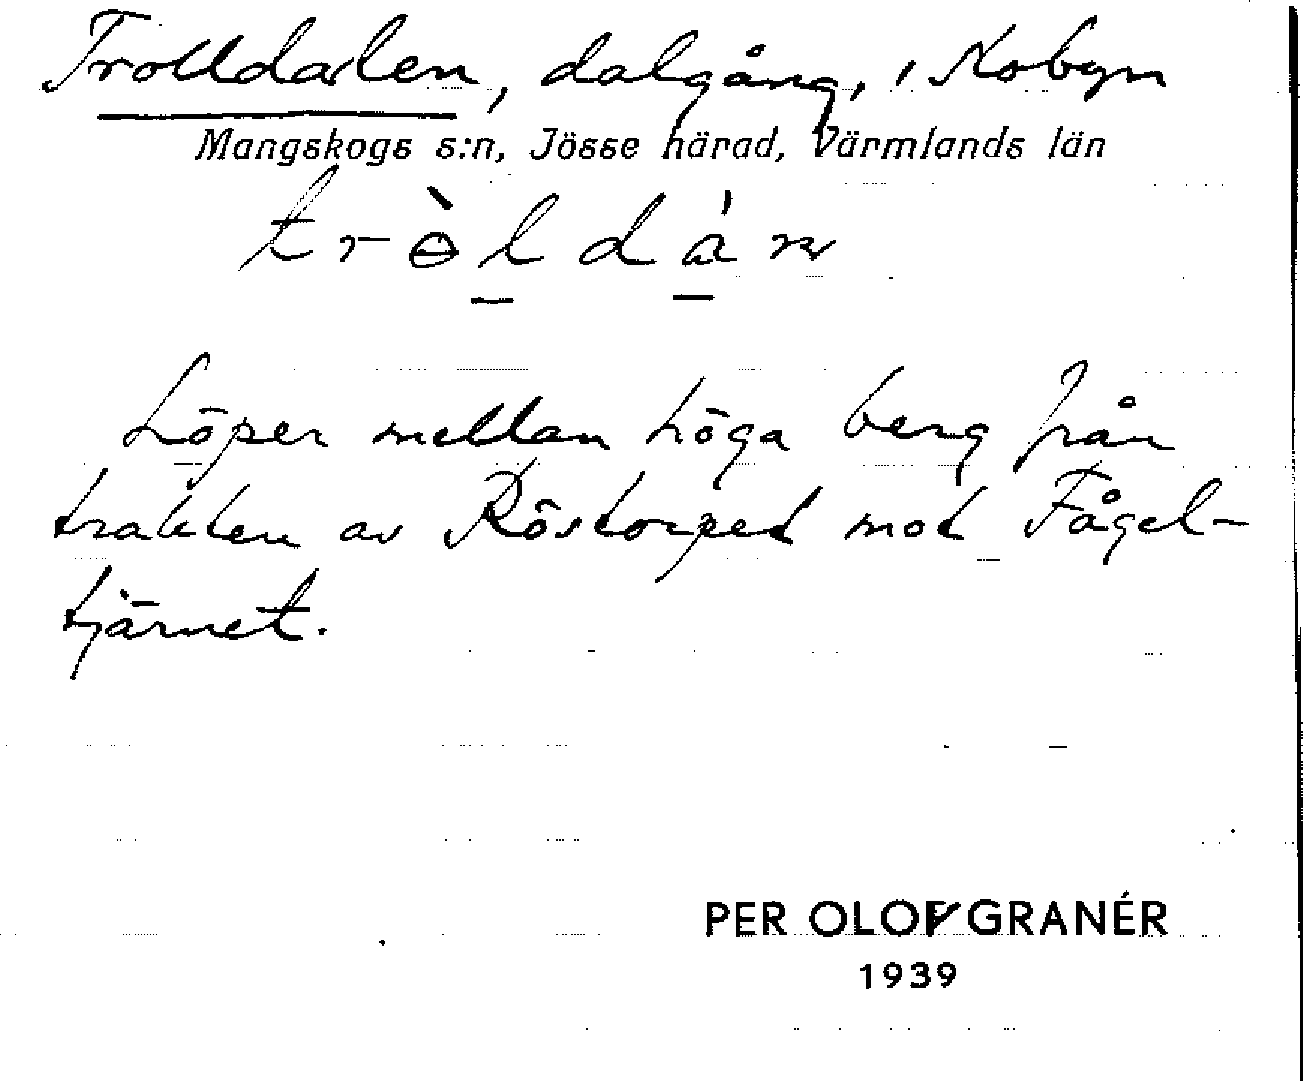 Trolldalen, dalgång, i Nobyn
Mangskogs s:n, Jösse härad, Värmlands län
trɵ̀ldán
Löper mellan höga berg från
trakten av Röstorpet mot Fågel-
tjärnet.
PER OLOF GRANÉR
1939